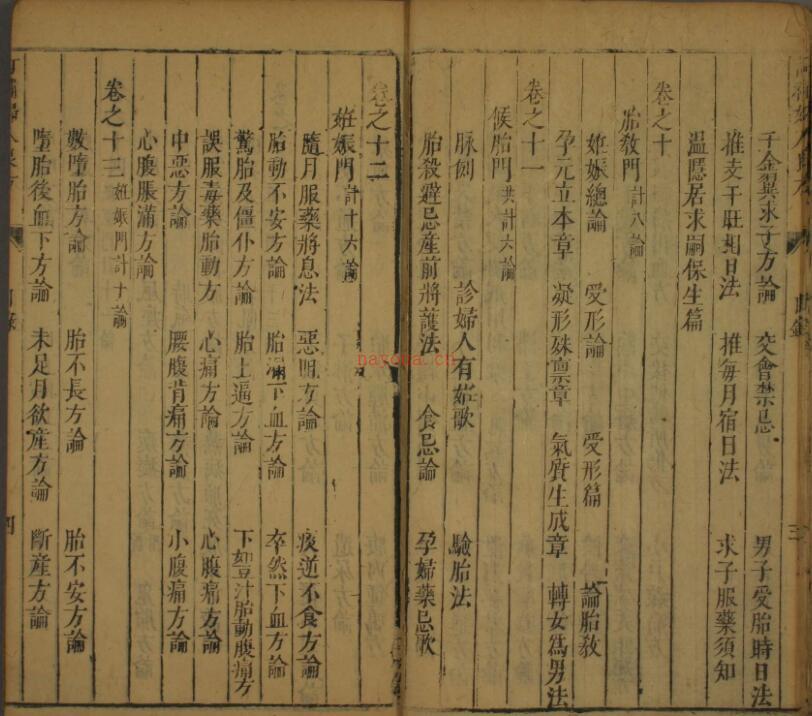 千金翼求子方論　交會禁忌　男子受胎時日法
推支干旺相日法　推每月宿日法　求子服藥須知
溫隱居求嗣保生篇
卷之十
胎敎門 計八論
姙娠總論　受形論　受形篇　論胎敎
孕元立本章　凝形殊禀章　氣質生成章　轉女爲男法
卷之十一
候胎門 共計六論
脉例　診婦人有姙歌　驗胎法
胎殺避忌產前將護法　食忌論　孕婦藥忌歌
三
卷之十二
姙娠門 計十六論
隨月服藥將息法　惡阻方論　痰逆不食方論
胎動不安方論　胎漏下血方論　卒然下血方論
驚胎及僵仆方論　胎上逼方論　下豆汁胎動腹痛方
誤服毒藥胎動方　心痛方論　心腹痛方論
中惡方論　腰腹背痛方論　小腹痛方論
心腹脹滿方論
卷之十三 姙娠門計十論
數墮胎方論　胎不長方論　胎不安方論
墮胎後血下方論　未足月欲產方論　斷產方論
四
nayona.cn